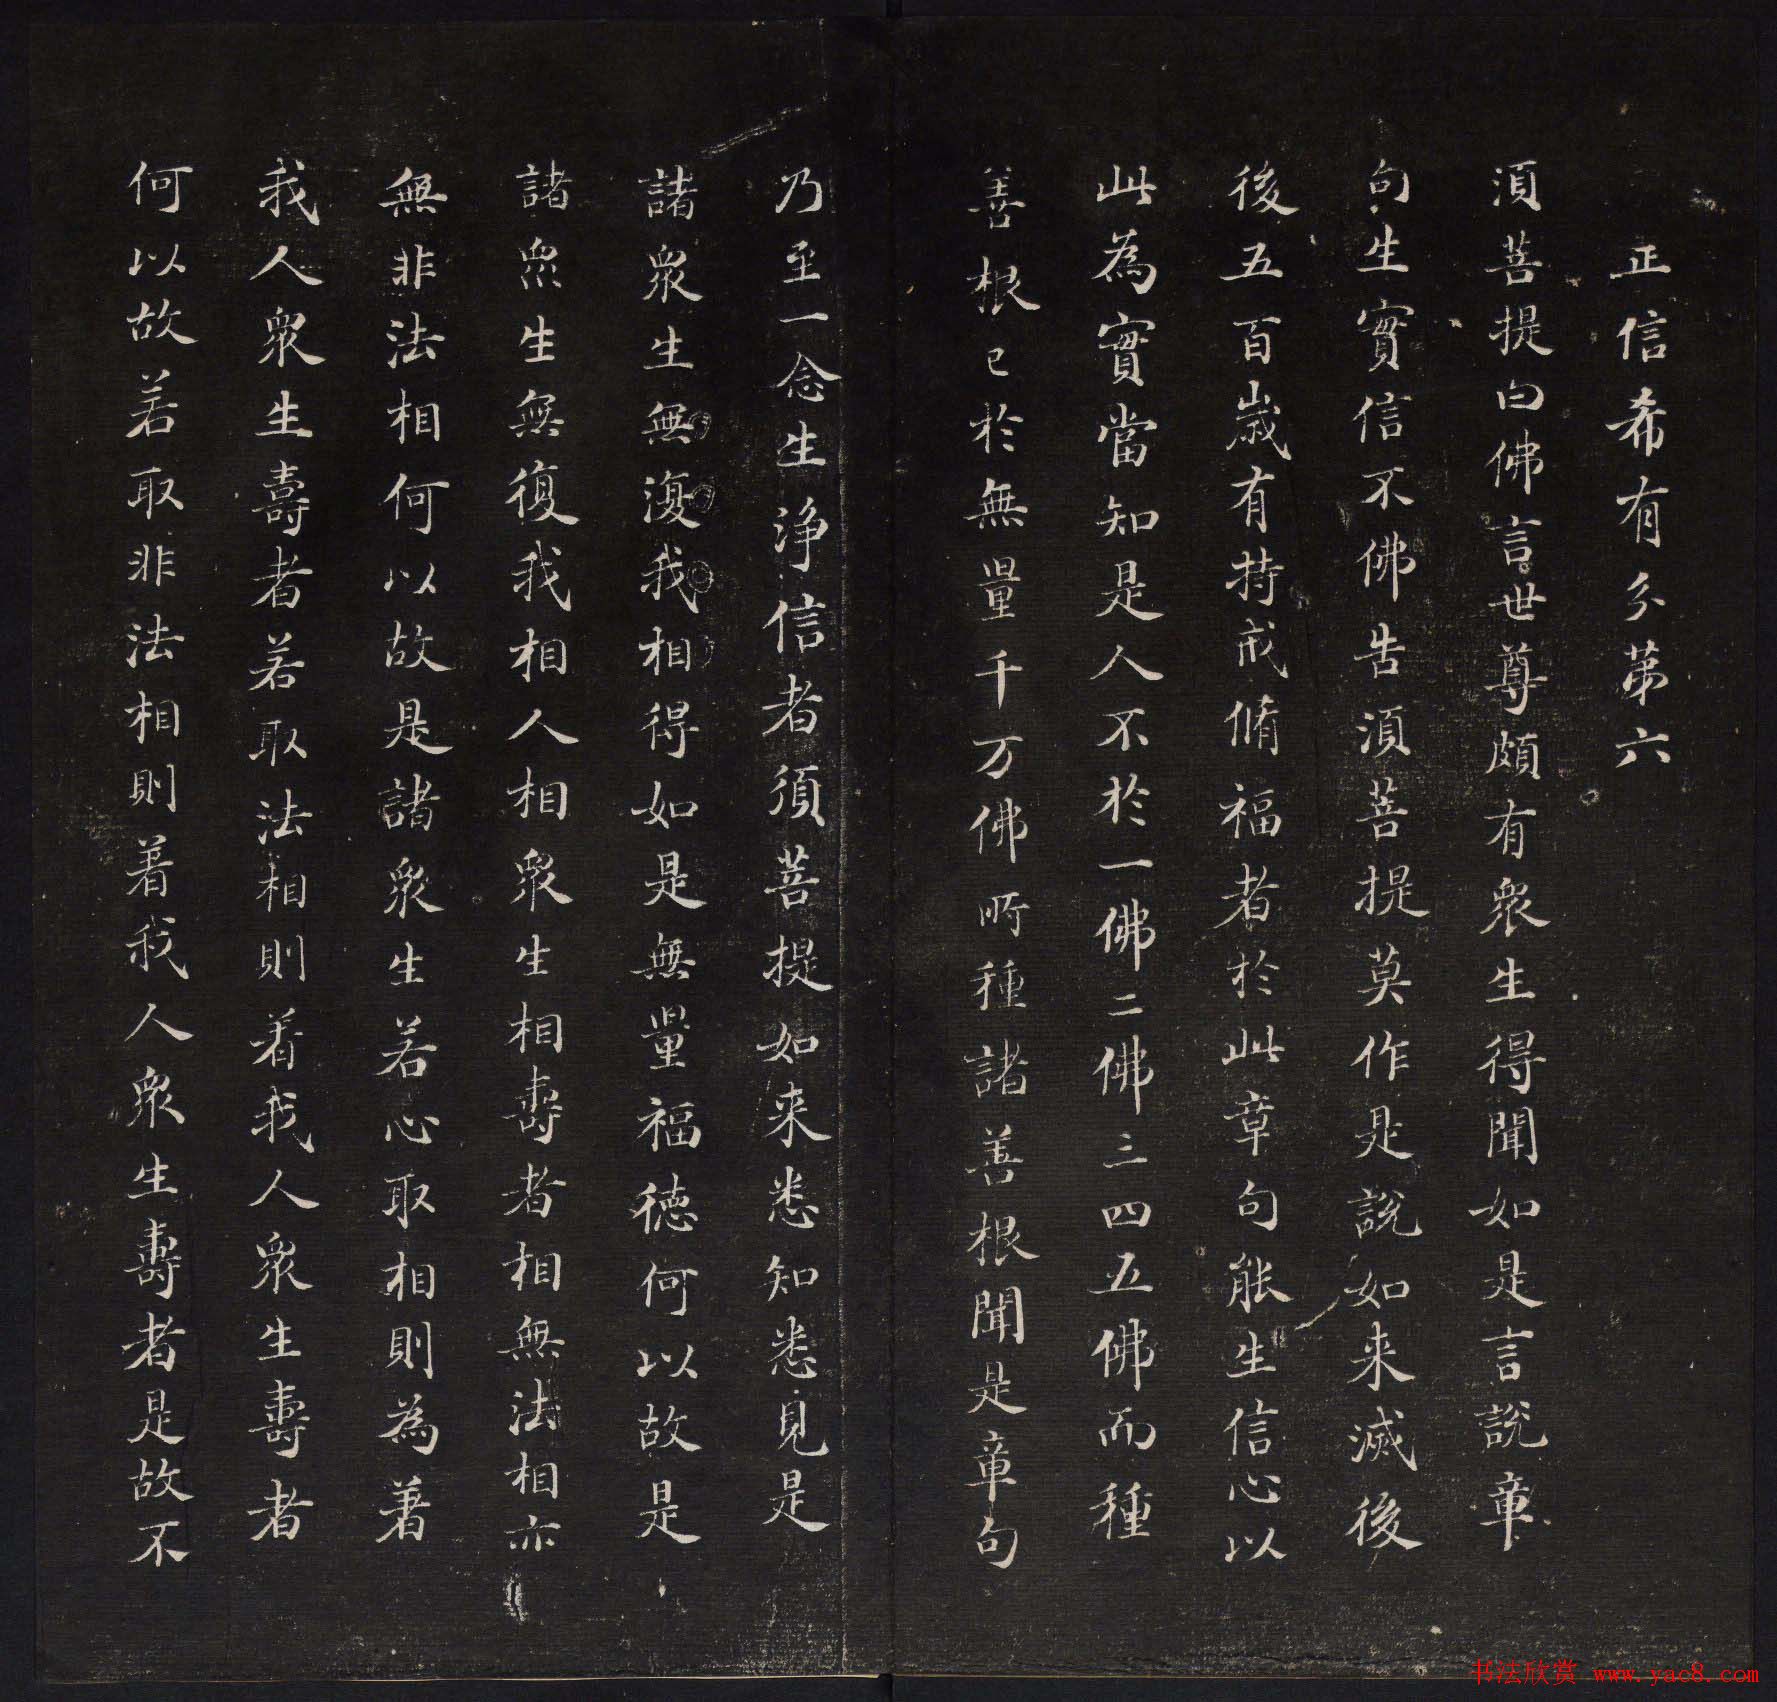 正信希有分第六
須菩提白佛言世尊頗有衆生得聞如是言說章
句生實信不佛告須菩提莫作是說如来滅後
後五百歲有持戒脩福者於此章句能生信心以
此為實當知是人不於一佛二佛三四五佛而種
善根已於無量千万佛所種諸善根聞是章句
乃至一念生淨信者須菩提如来悉知悉見是
諸衆生無復我相得如是無量福德何以故是
諸衆生無復我相人相衆生相壽者相無法相亦
無非法相何以故是諸衆生若心取相則為著
我人衆生壽者若取法相則着我人衆生壽者
何以故若取非法相則着我人衆生壽者是故不
书法欣赏 www.yac8.com